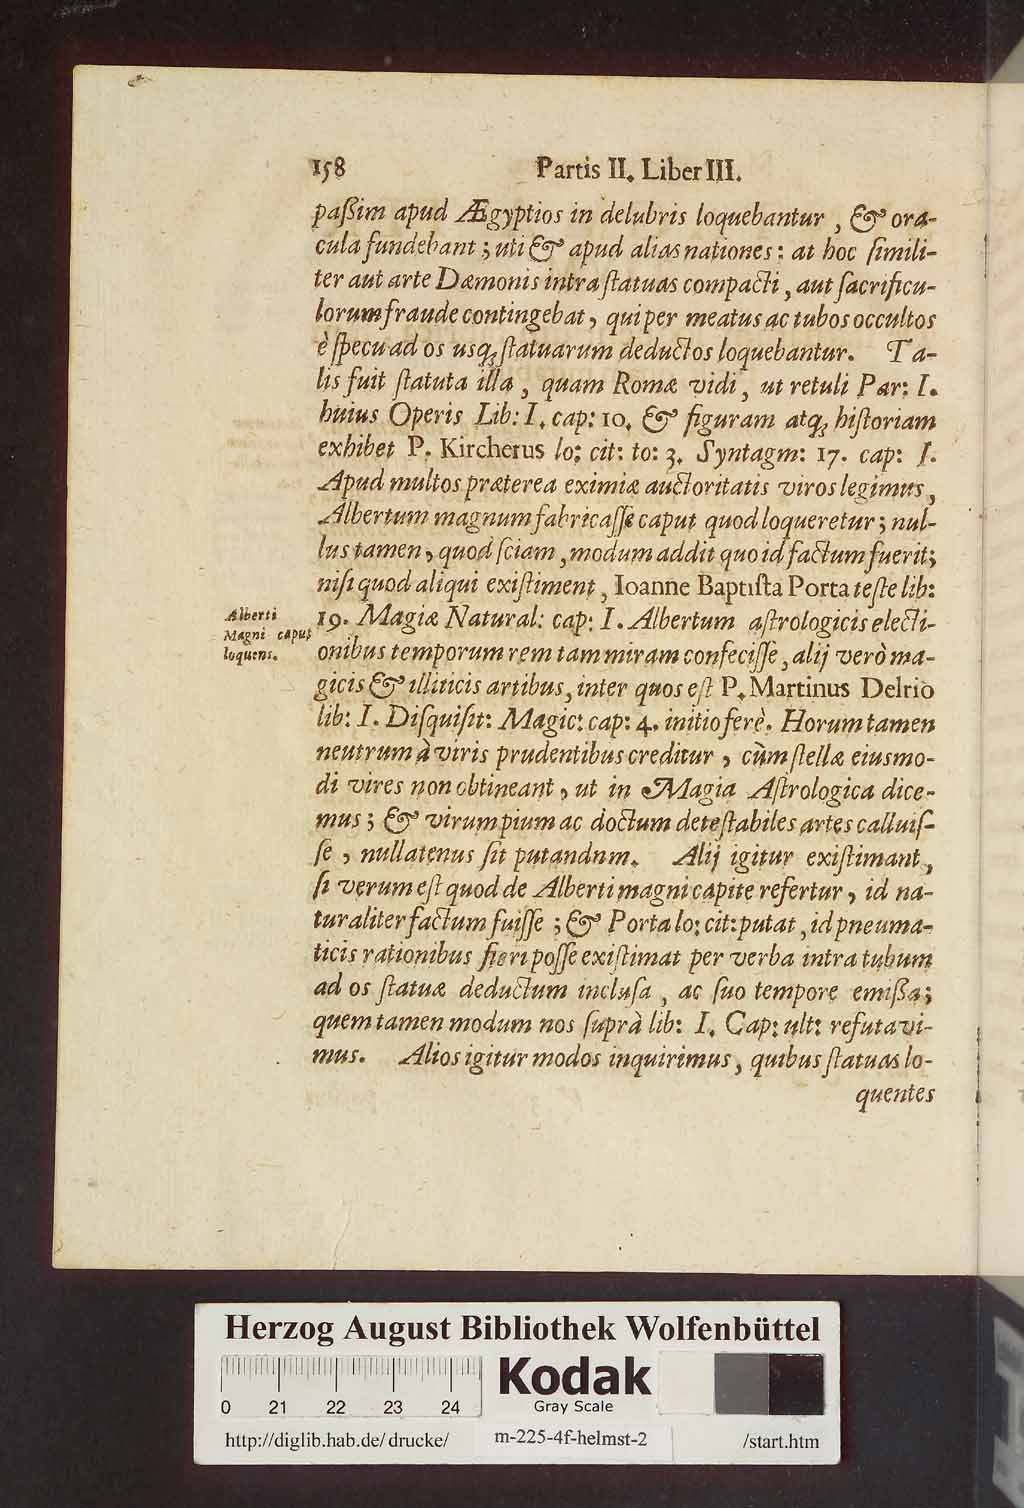 158 Partis II. Liber III.
paßim apud Ægyptios in delubris loquebantur, & ora-
cula fundebant; uti & apud alias nationes: at hoc ſimili-
ter aut arte Dæmonis intra ſtatuas compacti, aut ſacrificu-
lorum fraude contingebat, qui per meatus ac tubos occultos
è ſpecu ad os usq; ſtatuarum deductos loquebantur. Ta-
lis fuit ſtatuta illa, quam Romæ vidi, ut retuli Par: I.
huius Operis Lib: I. cap: 10. & figuram atq; hiſtoriam
exhibet P. Kircherus lo: cit: to: 3. Syntagm: 17. cap: I.
Apud multos præterea eximiæ auctoritatis viros legimus,
Albertum magnum fabricaſſe caput quod loqueretur; nul-
lus tamen, quod ſciam, modum addit quo id factum fuerit;
niſi quod aliqui exiſtiment, Ioanne Baptiſta Porta teſte lib:
Alberti
Magni caput
loquens.
19. Magiæ Natural: cap: I. Albertum aſtrologicis electi-
onibus temporum rem tam miram confeciſſe, alij verò ma-
gicis & illiticis artibus, inter quos eſt P. Martinus Delrio
lib: I. Diſquiſit: Magic: cap: 4. initio ferè. Horum tamen
neutrum à viris prudentibus creditur, cùm ſtellæ eiusmo-
di vires non obtineant, ut in Magia Aſtrologica dice-
mus; & virum pium ac doctum deteſtabiles artes calluiſ-
ſe, nullatenus ſit putandnm. Alij igitur exiſtimant,
ſi verum eſt quod de Alberti magni capite refertur, id na-
turaliter factum fuiſſe; & Porta lo: cit: putat, id pneuma-
ticis rationibus fieri poſſe exiſtimat per verba intra tubum
ad os ſtatuæ deductum incluſa, ac ſuo tempore emißa;
quem tamen modum nos ſuprà lib: I. Cap: ult: refutavi-
mus. Alios igitur modos inquirimus, quibus ſtatuas lo-
quentes
Herzog August Bibliothek Wolfenbüttel
Kodak
Gray Scale
0 21 22 23 24
http://diglib.hab.de/drucke/ m-225-4f-helmst-2 /start.htm